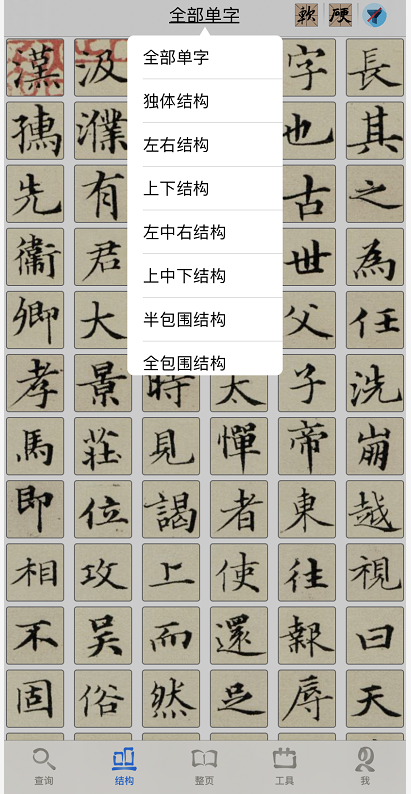 全部单字 軟 硬
漢 汲 字 長
全部单字
独体结构
左右结构
上下结构
左中右结构
上中下结构
半包围结构
全包围结构
濮 也 其
先 有 古 之
衞 君 世 為
卿 大 父 任
孝 景 時 太 子 洗
馬 莊 見 憚 帝 崩
即 位 謁 者 東 越
相 攻 上 使 往 視
不 吴 而 還 報 曰
固 俗 然 辱 天
查询 结构 整页 工具 我